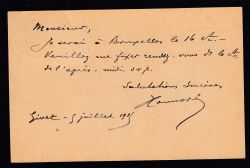 Monsieur,
je serai à Bruxelles le 16 ct.
Veuillez me fixer rendez-vous de le
de l'après-midi s.v.p.
Salutations sincères
Givet - 5 juillet